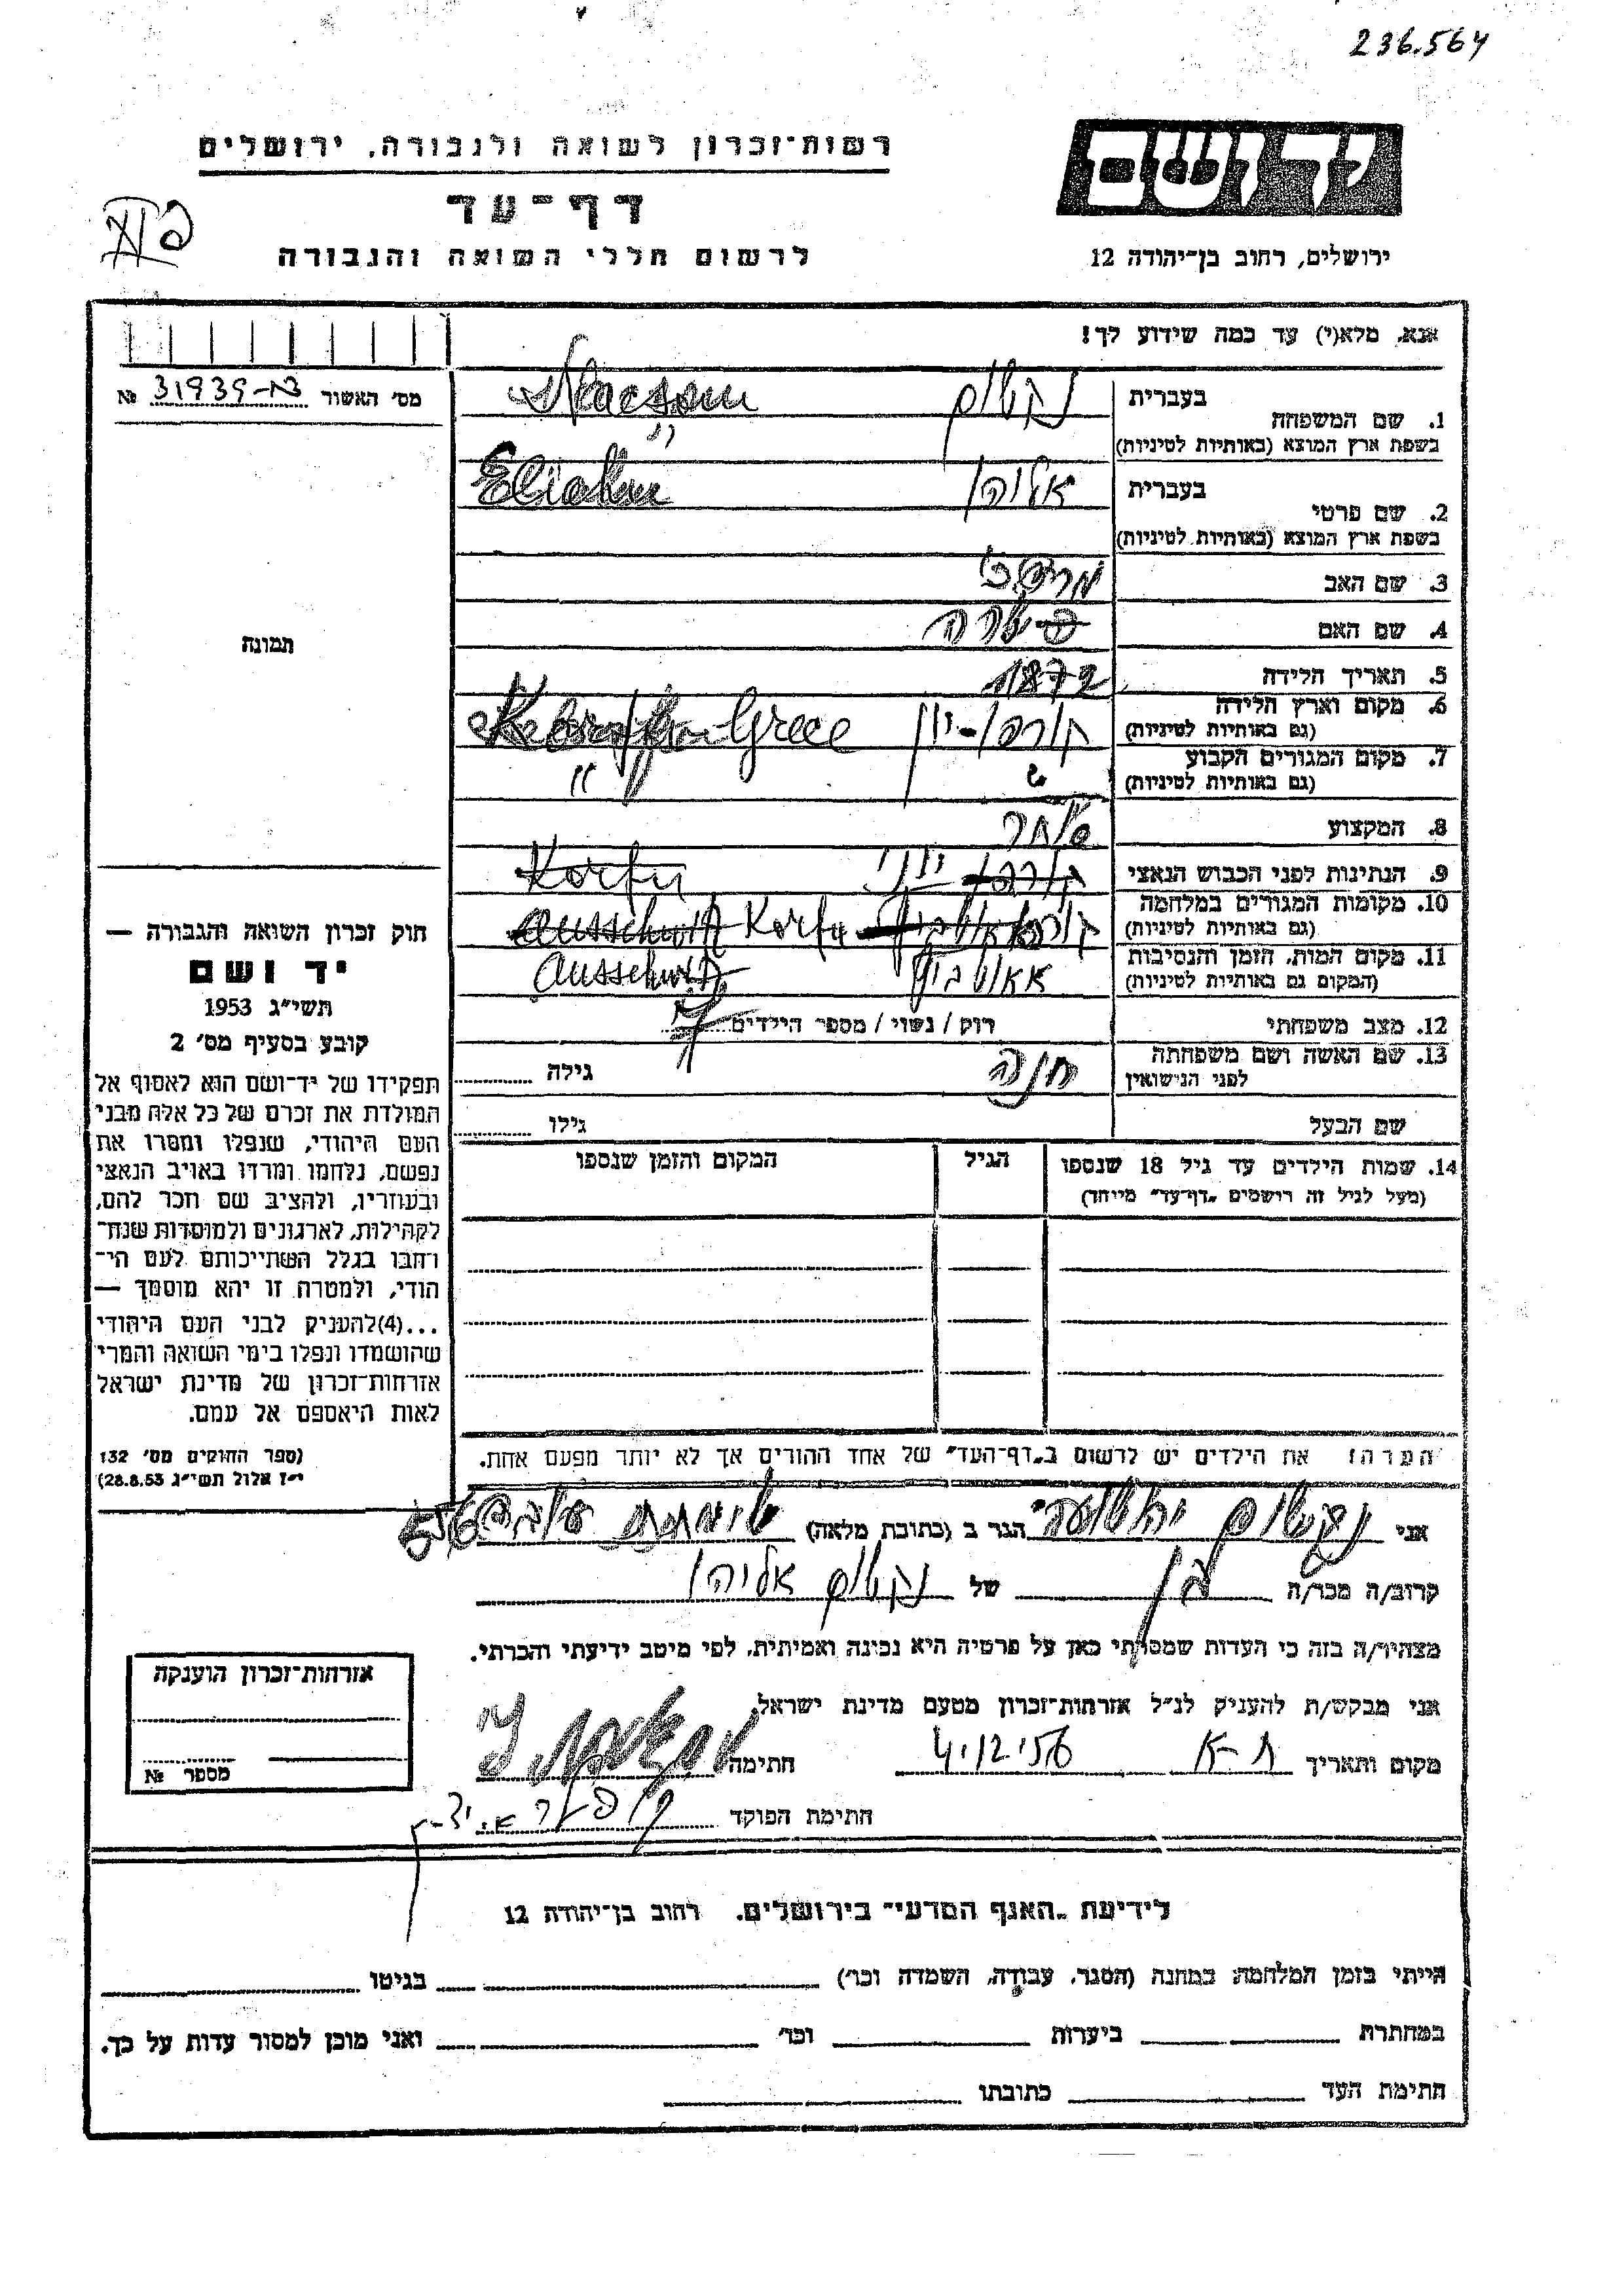 236.564
יד ושם
רשות־זכרון לשואה ולגבורה, ירושלים
דף־עד
לרשום חללי השואה והגבורה
ירושלים, רחוב בן־יהודה 12
אנא, מלא(י) עד כמה שידוע לך!
מס׳ האשור 31939 №
בעברית
1. שם המשפחה
בשפת ארץ המוצא (באותיות לטיניות)
נקשום
בעברית אליהו
2. שם פרטי
בשפת ארץ המוצא (באותיות לטיניות)
3. שם האב
4. שם האם
5. תאריך הלידה 1872
6. מקום וארץ הלידה
(גם באותיות לטיניות)
קורפו-יון Grece
7. מקום המגורים הקבוע
(גם באותיות לטיניות)
״ ״
8. המקצוע סוחר
9. הנתינות לפני הכבוש הנאצי קורפו יוני Korfu
10. מקומות המגורים במלחמה
(גם באותיות לטיניות)
Korfu Ausschwitz
11. מקום המות, הזמן והנסיבות
(המקום גם באותיות לטיניות)
אאושביץ Ausschwitz
12. מצב משפחתי רוק / נשוי / מספר הילדים 7
13. שם האשה ושם משפחתה
לפני הנישואין
חנה גילה
שם הבעל גילו
14. שמות הילדים עד גיל 18 שנספו הגיל המקום והזמן שנספו
(מעל לגיל זה רושמים „דף־עד״ מיוחד)
הערה: את הילדים יש לרשום ב„דף־העד״ של אחד ההורים אך לא יותר מפעם אחת.
תמונה
חוק זכרון השואה והגבורה —
יד ושם
תשי״ג 1953
קובע בסעיף מס׳ 2
תפקידו של יד־ושם הוא לאסוף אל
המולדת את זכרם של כל אלה מבני
העם היהודי, שנפלו ומסרו את
נפשם, נלחמו ומרדו באויב הנאצי
ובעוזריו, ולהציב שם וזכר להם,
לקהילות, לארגונים ולמוסדות שנח־
רבו בגלל השתייכותם לעם הי־
הודי, ולמטרה זו יהא מוסמך —
...(4)להעניק לבני העם היהודי
שהושמדו ונפלו בימי השואה והמרי
אזרחות־זכרון של מדינת ישראל
לאות היאספם אל עמם.
(ספר החוקים מס׳ 132
י״ז אלול תשי״ג 28.8.53)
אני נקשום יהושע הגר ב (כתובת מלאה)
קרוב/ה מכר/ה בן של נקשום אליהו
מצהיר/ה בזה כי העדות שמסרתי כאן על פרטיה היא נכונה ואמיתית, לפי מיטב ידיעתי והכרתי.
אני מבקש/ת להעניק לנ״ל אזרחות־זכרון מטעם מדינת ישראל.
מקום ותאריך ת-א חתימה
חתימת הפוקד
אזרחות־זכרון הוענקה
מספר №
לידיעת „האגף המדעי״ בירושלים, רחוב בן־יהודה 12
הייתי בזמן המלחמה: במחנה (הסגר, עבודה, השמדה וכו׳) בגיטו
במחתרת ביערות וכו׳ ואני מוכן למסור עדות על כך.
חתימת העד כתובתו